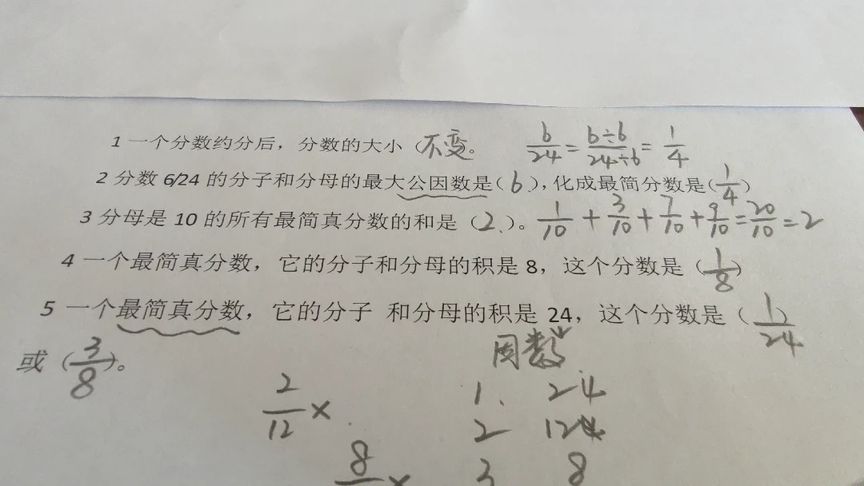 1 一个分数约分后，分数的大小（不变。 6/24 = 6÷6/24÷6 = 1/4
2 分数 6/24 的分子和分母的最大公因数是（6），化成最简分数是（1/4）
3 分母是 10 的所有最简真分数的和是（2）。 1/10 + 3/10 + 7/10 + 9/10 = 20/10 = 2
4 一个最简真分数，它的分子和分母的积是 8，这个分数是（1/8）
5 一个最简真分数，它的分子 和分母的积是 24，这个分数是（1/24）
或（3/8）。
因数
2/12 × 1. 24
2 12
8 × 3 8